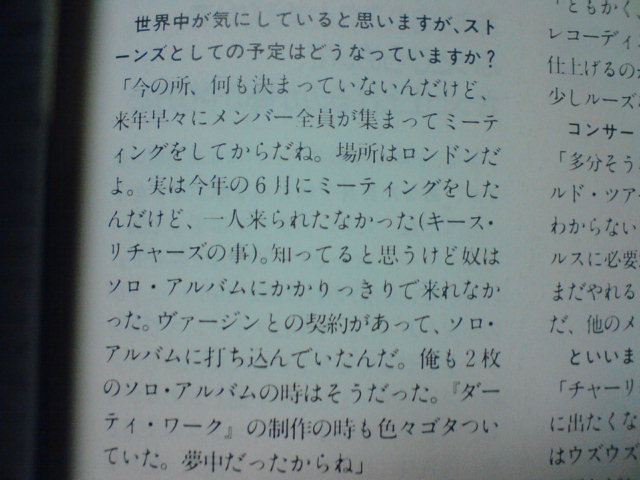 世界中が気にしていると思いますが、スト
ーンズとしての予定はどうなっていますか？
「今の所、何も決まっていないんだけど、
来年早々にメンバー全員が集まってミーテ
ィングをしてからだね。場所はロンドンだ
よ。実は今年の6月にミーティングをした
んだけど、一人来られたなかった(キース・
リチャーズの事)。知ってると思うけど奴は
ソロ・アルバムにかかりっきりで来れなか
った。ヴァージンとの契約があって、ソロ・
アルバムに打ち込んでいたんだ。俺も2枚
のソロ・アルバムの時はそうだった。『ダー
ティ・ワーク』の制作の時も色々ゴタつい
ていた。夢中だったからね」
「ともかく
レコーディ
仕上げるの
少しルーズ
コンサー
「多分そう
ルド・ツア
わからない
ルスに必要
まだやれる
だ、他のメ
といいま
「チャーリ
に出たくな
はウズウズ